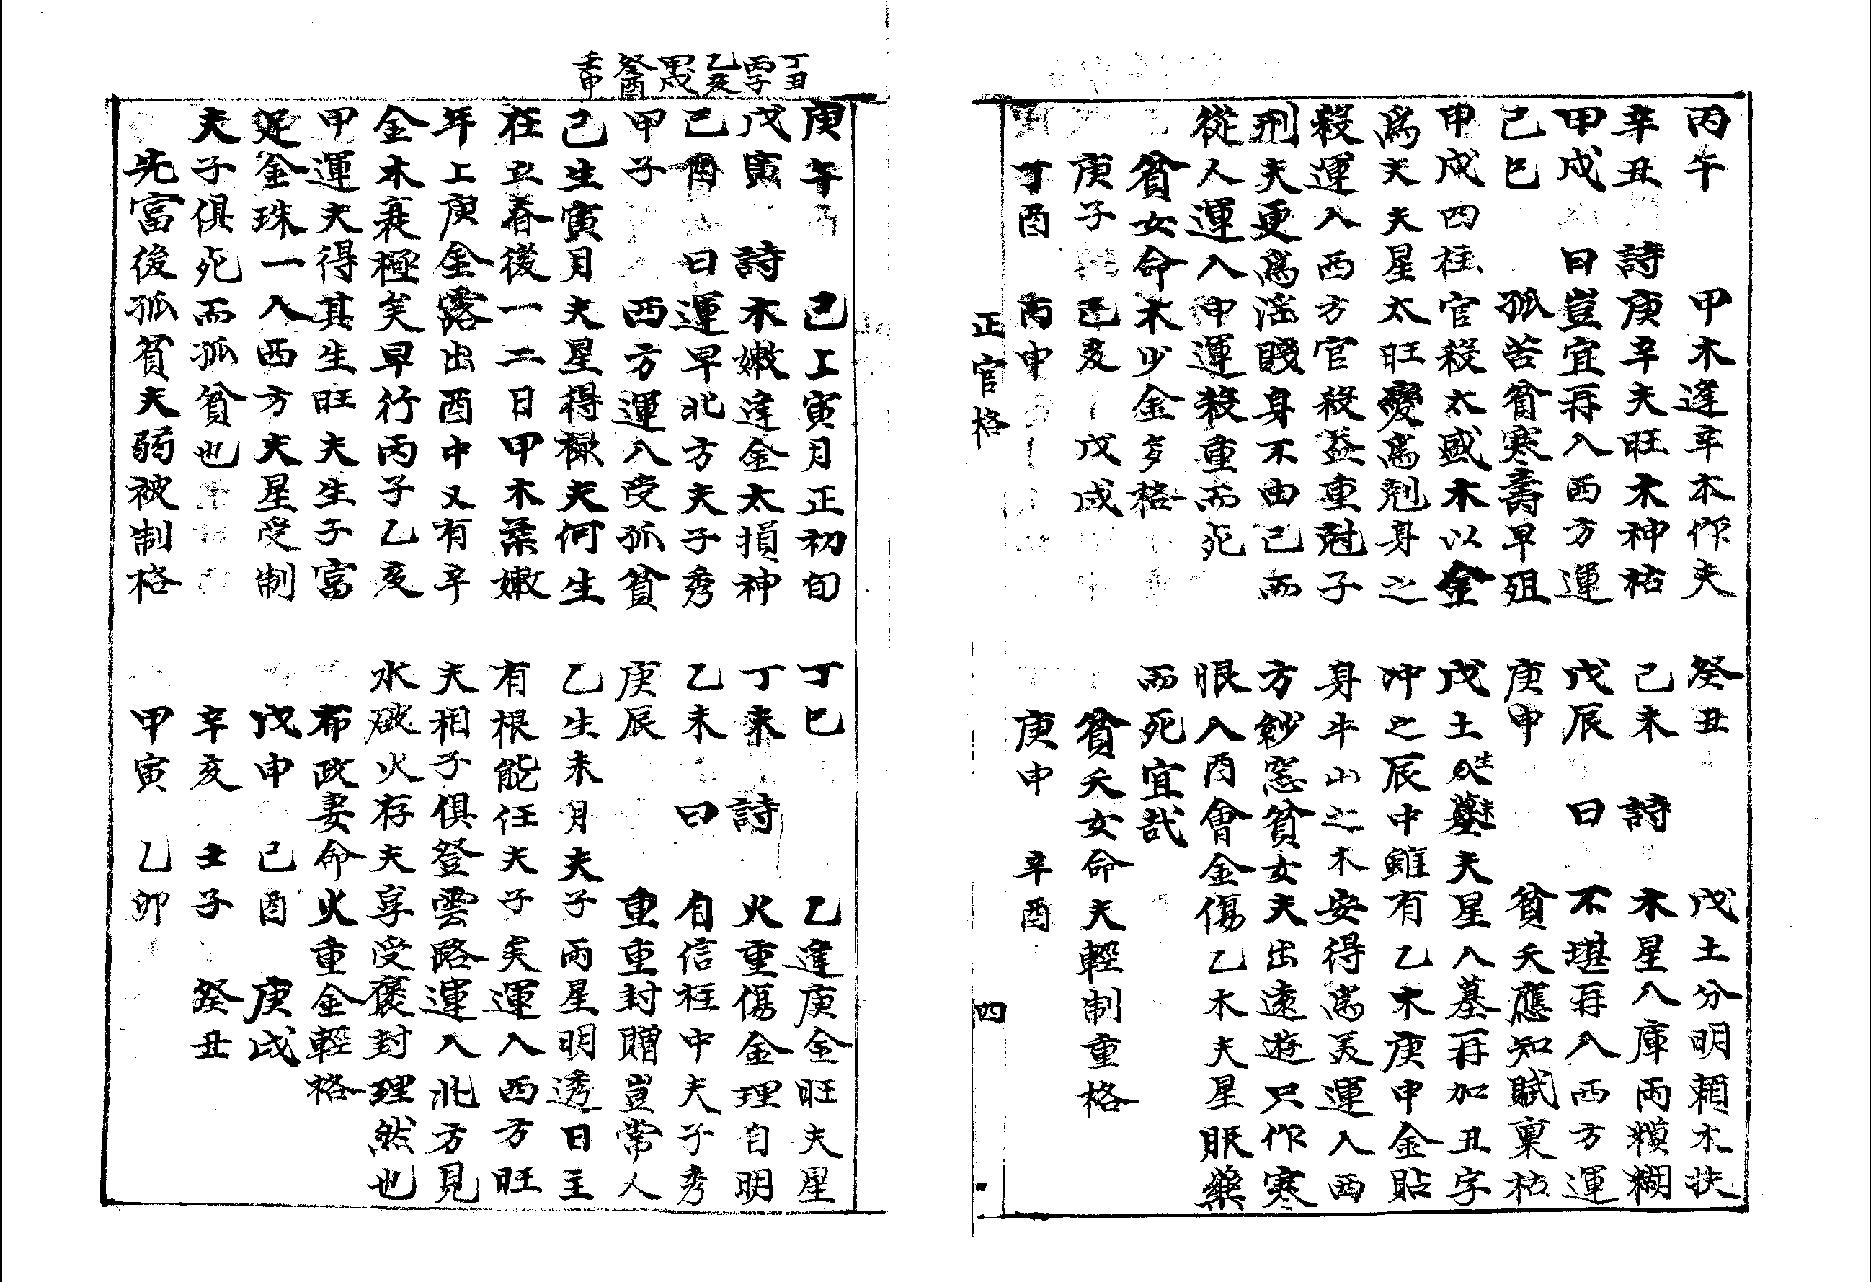 丙午 甲木逢辛本作夫
辛丑 詩庚辛夫旺木神枯
甲戌 曰豈宜再入西方運
己巳 孤苦貧寒壽早殂
甲戌四柱官殺太盛木以金
為夫夫星太旺變為剋身之
殺運入西方官殺益重尅子
刑夫更為淫賤身不由己而
從人運入申運殺重而死
貧女命木少金多格
庚子 己亥 戊戌
丁酉 丙申
癸丑 戊土分明賴木扶
己未 詩 木星入庫兩糢糊
戊辰 曰 不堪再入西方運
庚申 貧夭應知賦稟枯
戊土生未墓夫星入墓再加丑字
冲之辰中雖有乙木庚申金貼
身斗山之木安得為美運入西
方紗窓貧女夫出遠遊只作寒
眼入酉會金傷乙木夫星眠藥
而死宜哉
貧夭女命夫輕制重格
庚申 辛酉
正官格 四
丁丑 丙子 乙亥 甲戌 癸酉 壬申
庚午 己上寅月正初旬
戊寅 詩木嫩逢金太損神
己酉 曰運早北方夫子秀
甲子 西方運入受孤貧
己生寅月夫星得祿夫何生
在立春後一二日甲木葉嫩
年上庚金露出酉中又有辛
金木衰極矣早行丙子乙亥
甲運夫得其生旺夫生子富
足金珠一入西方夫星受制
夫子俱死而孤貧也
先富後孤貧夫弱被制格
丁巳 乙逢庚金旺夫星
丁未 詩 火重傷金理自明
乙未 曰 自信柱中夫子秀
庚辰 重重封贈豈常人
乙生未月夫子兩星明透日主
有根能任夫子矣運入西方旺
夫相子俱登雲路運入北方見
水破火存夫享受褒封理然也
布政妻命火重金輕格
戊申 己酉 庚戌
辛亥 壬子 癸丑
甲寅 乙卯